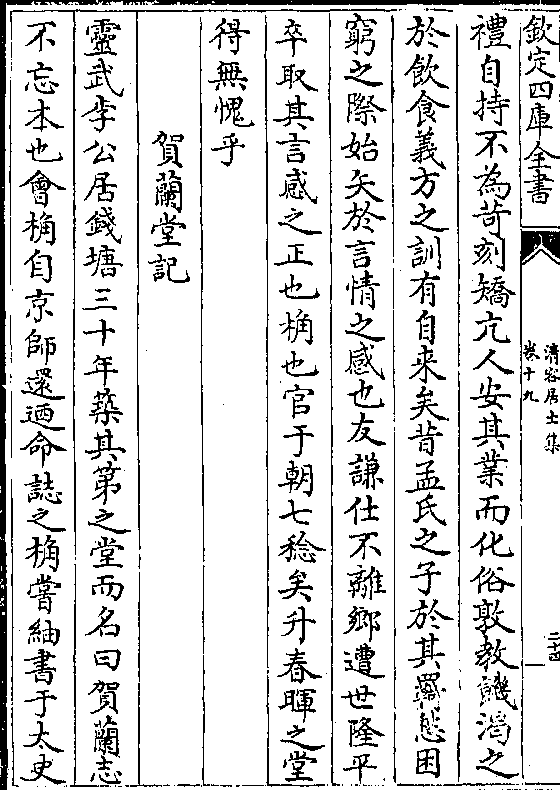 欽定四庫全書
清容居士集
卷十九
二十四
禮自持不為苛刻矯亢人安其業而化俗敦教饑渴之
於飲食義方之訓有自来矣昔孟氏之子於其羈愁困
窮之際始矢於言情之感也友謙仕不離鄉遭世隆平
卒取其言感之正也桷也官于朝七稔矣升春暉之堂
得無愧乎
賀蘭堂記
靈武李公居錢塘三十年築其第之堂而名曰賀蘭志
不忘本也會桷自京師還廼命誌之桷嘗紬書于太史